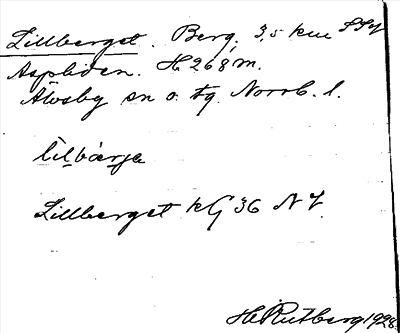 Lillberget. Berg, 3,5 km SSV
Aspliden. H 268 m.
Älvsby sn o. tg. Norrb. l.
lìlbàrjə
Lillberget kG 36 NV.
H. Rutberg 1928.